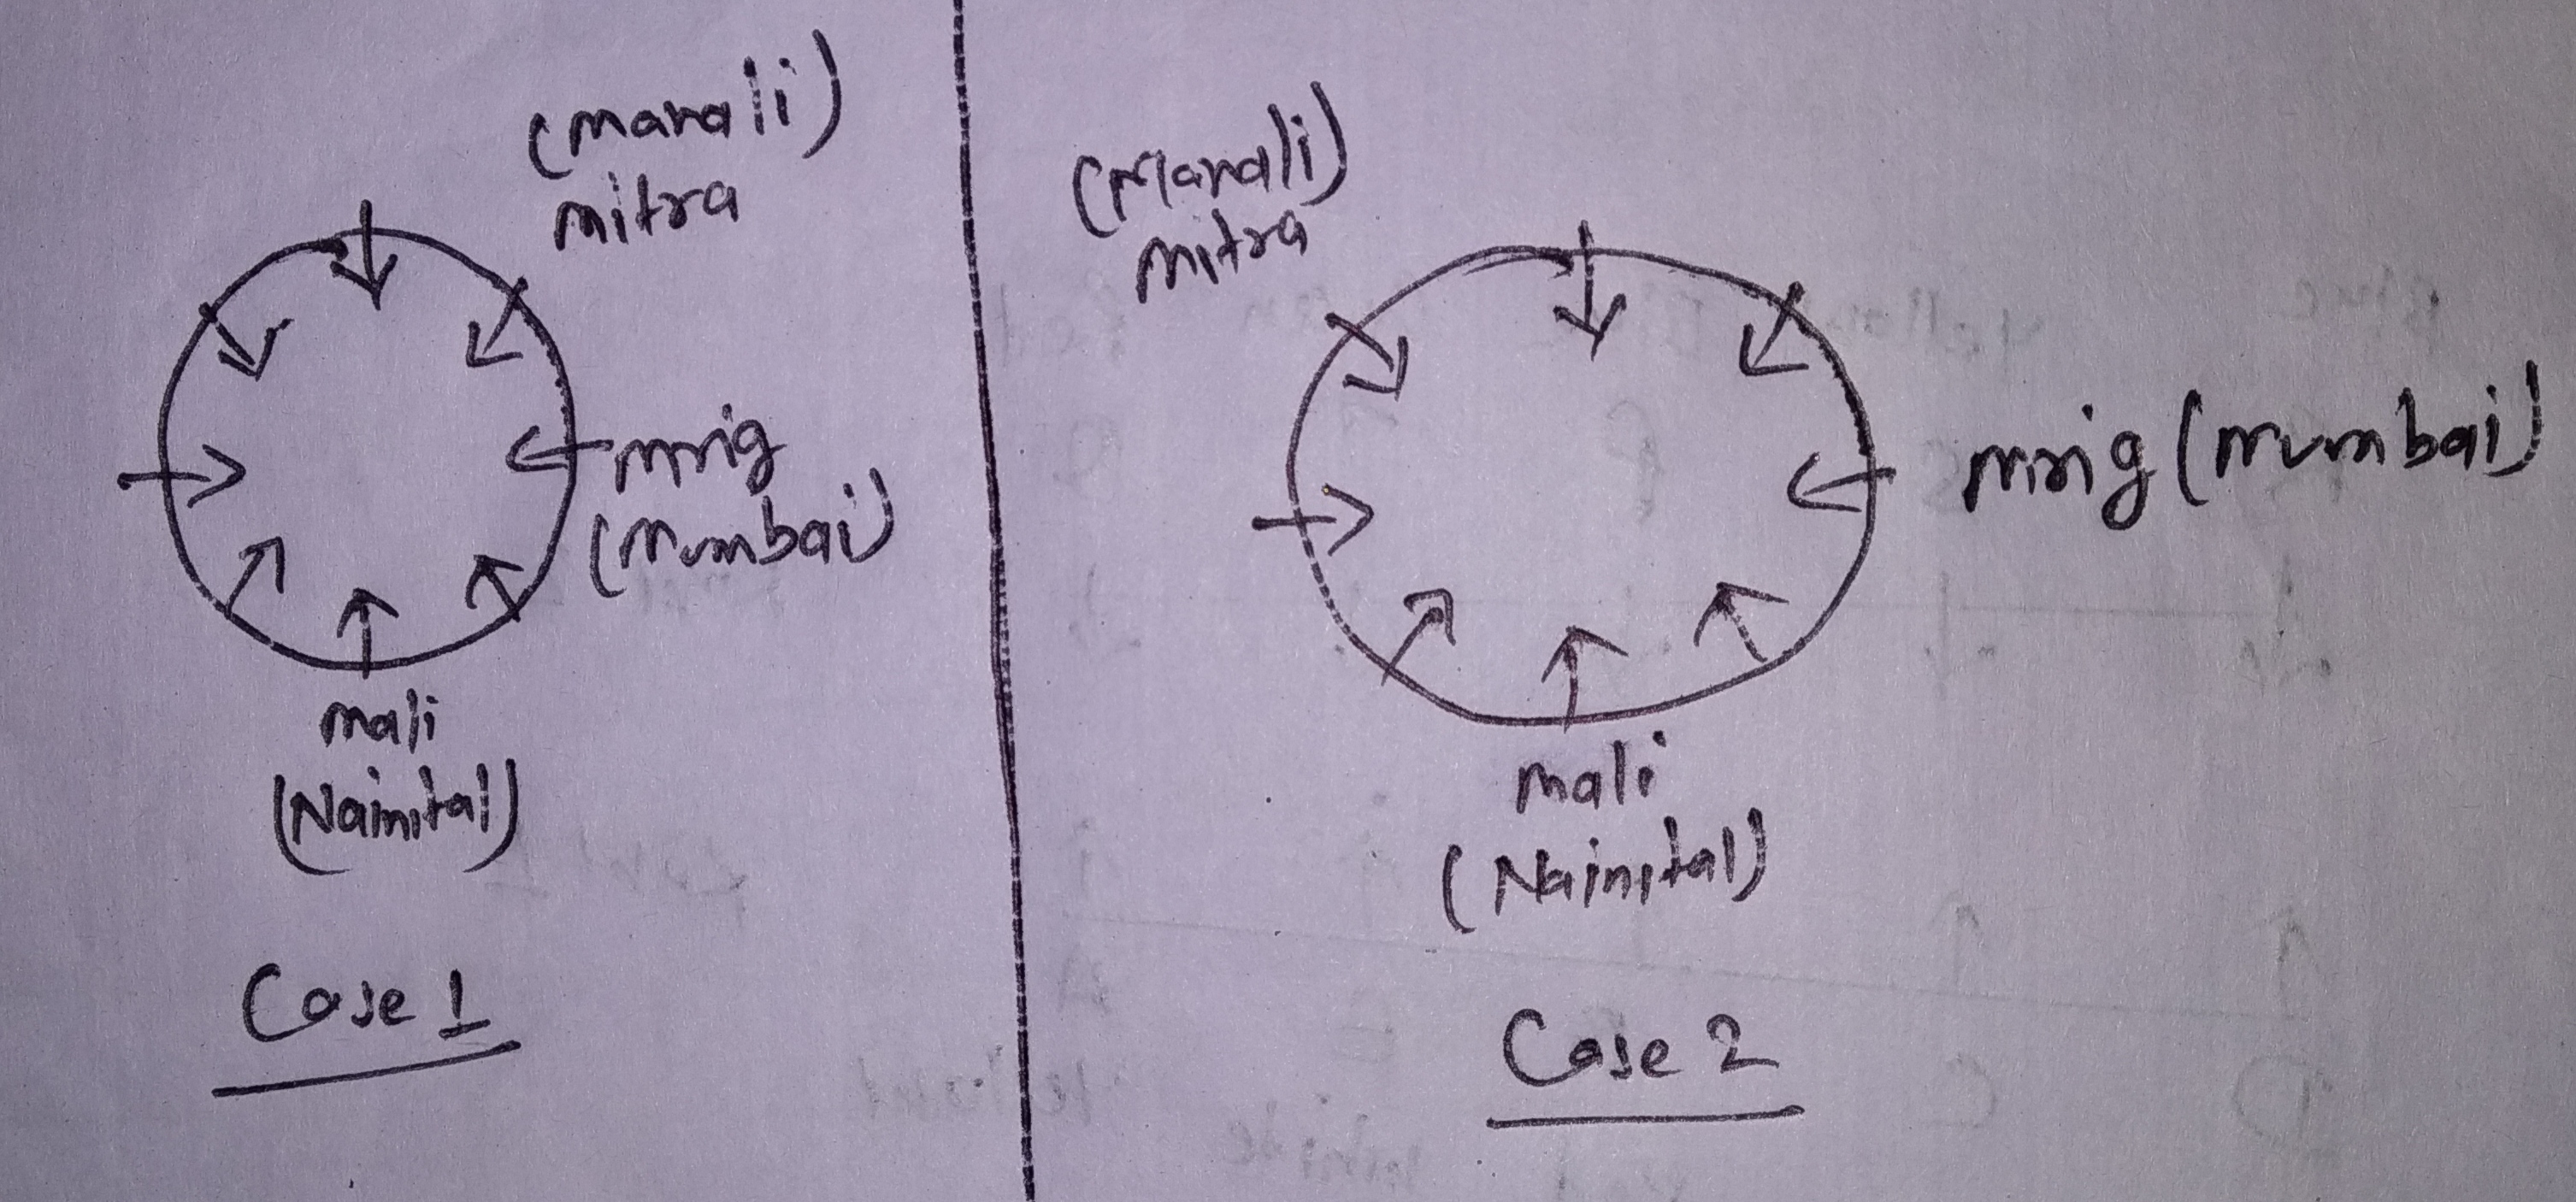 (manali)
mitra
mrig
(Mumbai)
mali
(Nainital)
Case 1
(Manali)
mitra
mrig (mumbai)
mali
(Nainital)
Case 2